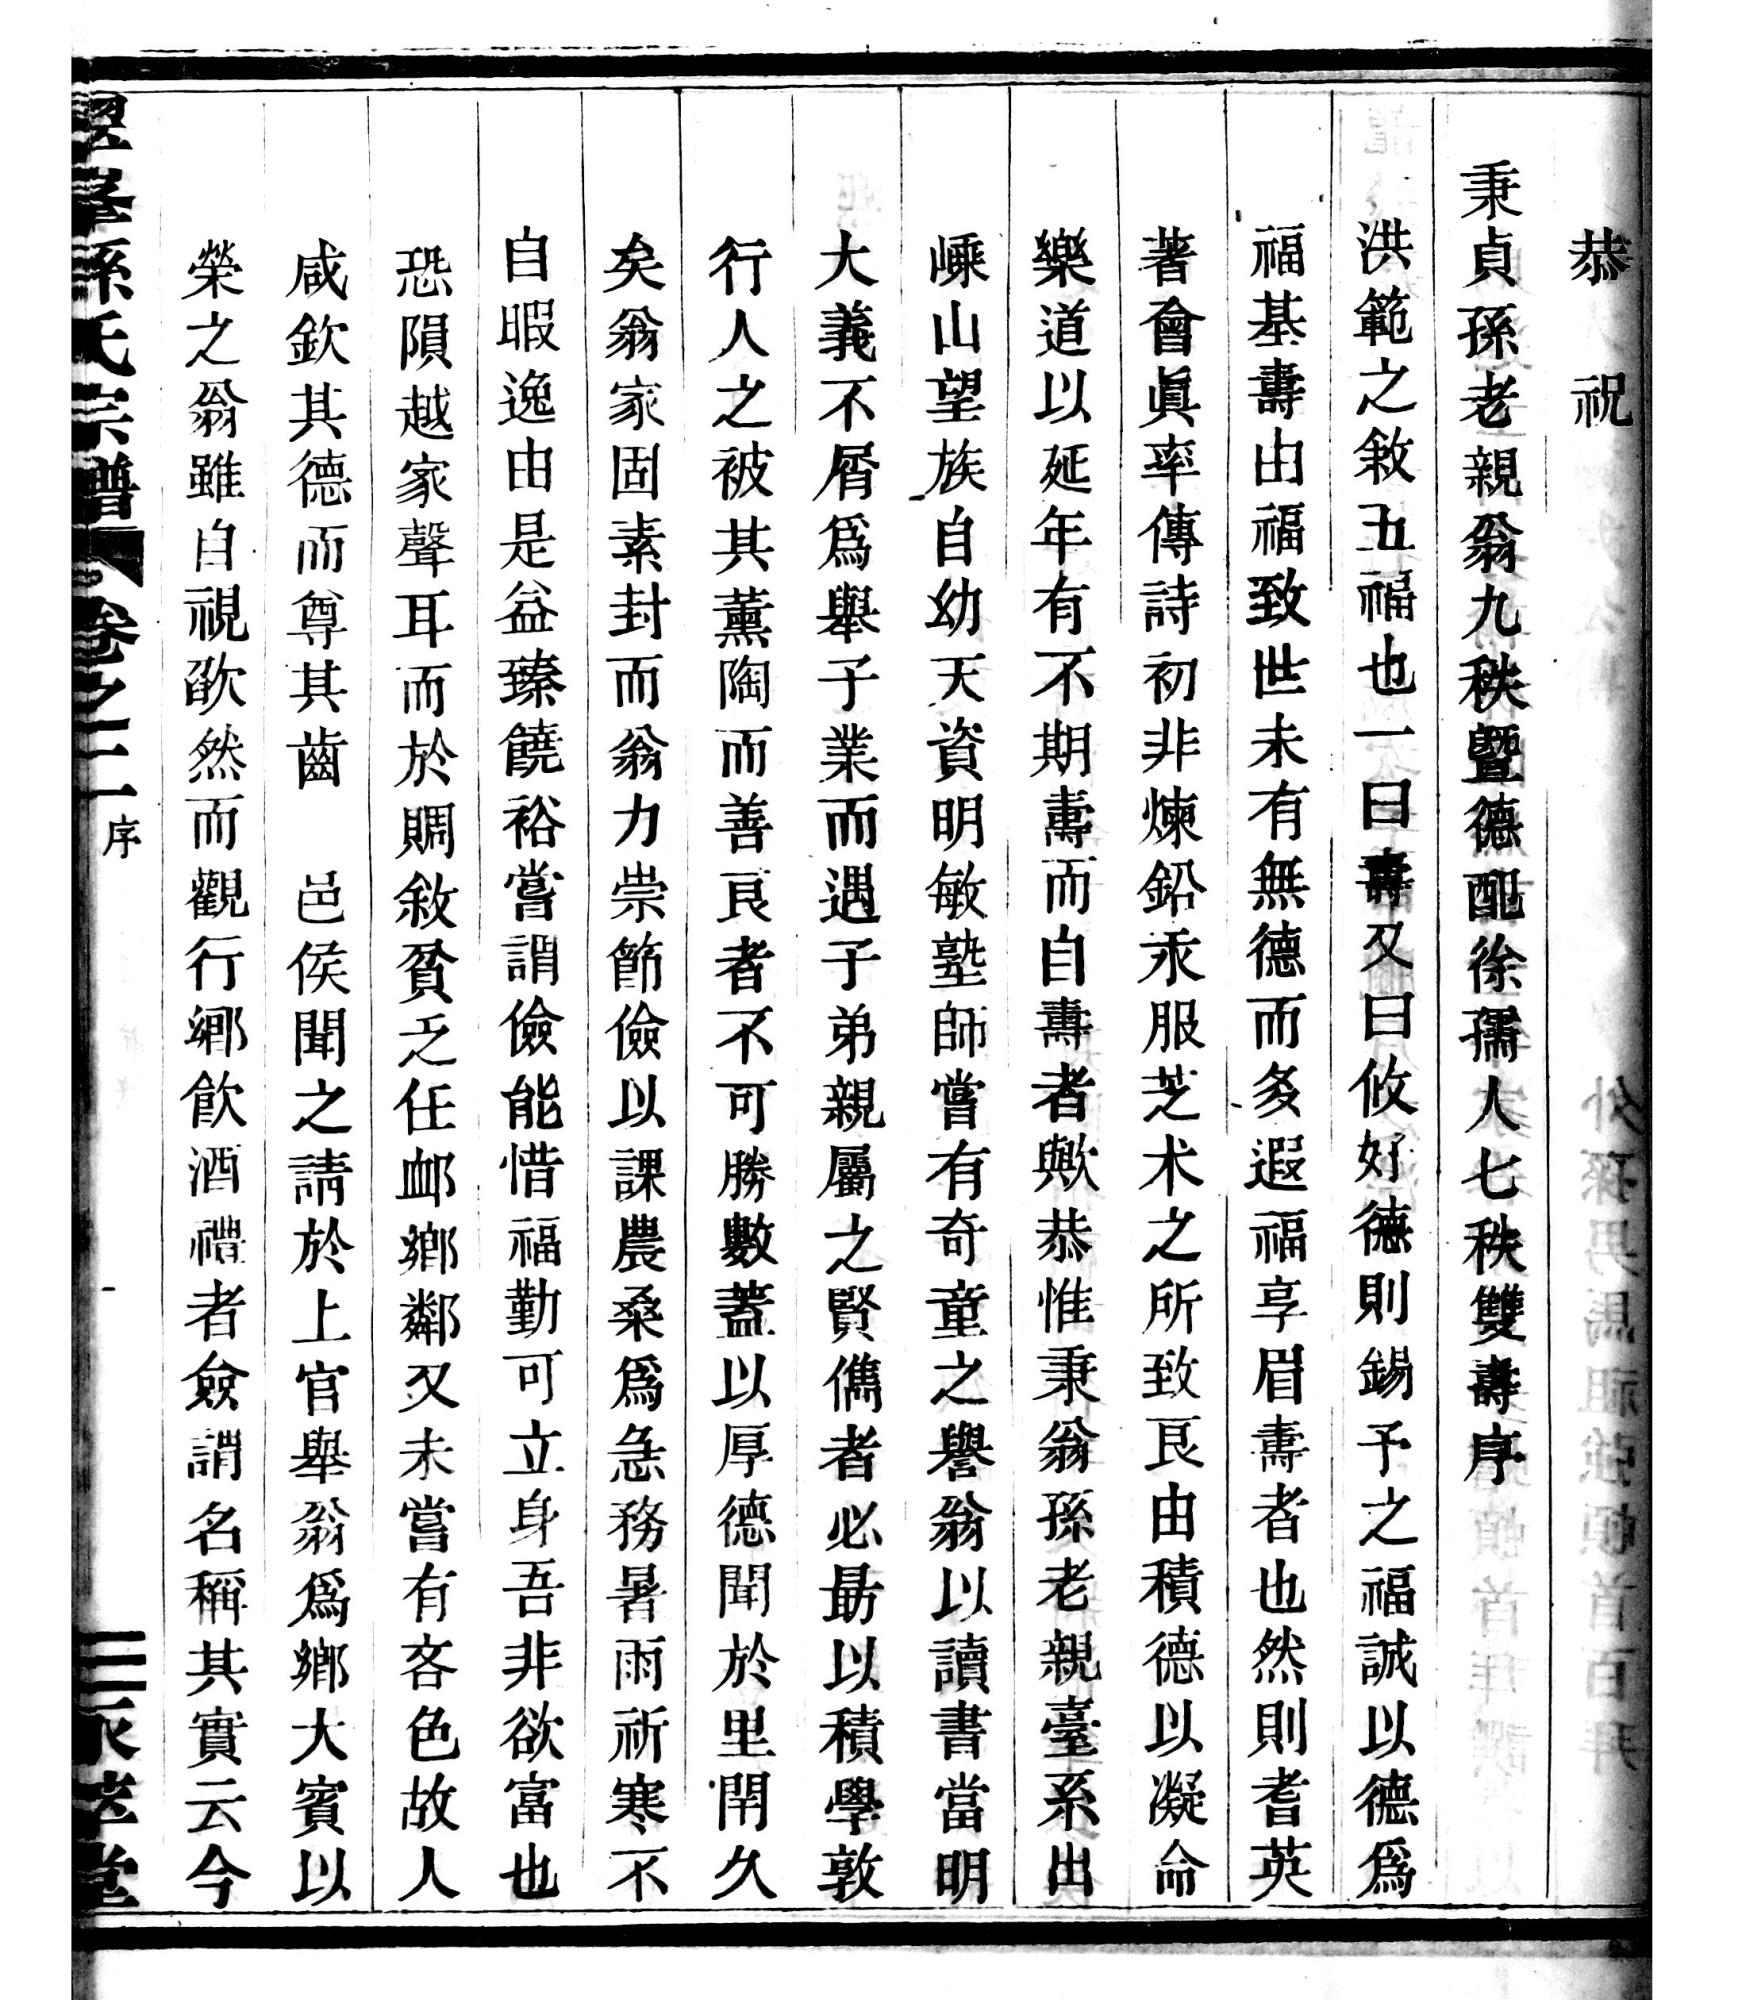 恭祝
秉貞孫老親翁九秩暨德配徐孺人七秩雙壽序
洪範之敘五福也一曰壽又曰攸好德則錫予之福誠以德爲
福基壽由福致世未有無德而多遐福享眉壽者也然則耆英
著會眞率傳詩初非煉鉛汞服芝朮之所致良由積德以凝命
樂道以延年有不期壽而自壽者歟恭惟秉翁孫老親臺系出
嵊山望族自幼天資明敏塾師嘗有奇童之譽翁以讀書當明
大義不屑爲舉子業而遇子弟親屬之賢儁者必勗以積學敦
行人之被其薰陶而善良者不可勝數蓋以厚德聞於里閈久
矣翁家固素封而翁力崇節儉以課農桑爲急務暑雨祈寒不
自暇逸由是益臻饒裕嘗謂儉能惜福勤可立身吾非欲富也
恐隕越家聲耳而於賙敘貧乏任卹鄉鄰又未嘗有吝色故人
咸欽其德而尊其齒 邑侯聞之請於上官舉翁爲鄉大賓以
榮之翁雖自視欿然而觀行鄉飲酒禮者僉謂名稱其實云今
孫氏宗譜 卷之二 序 萃堂